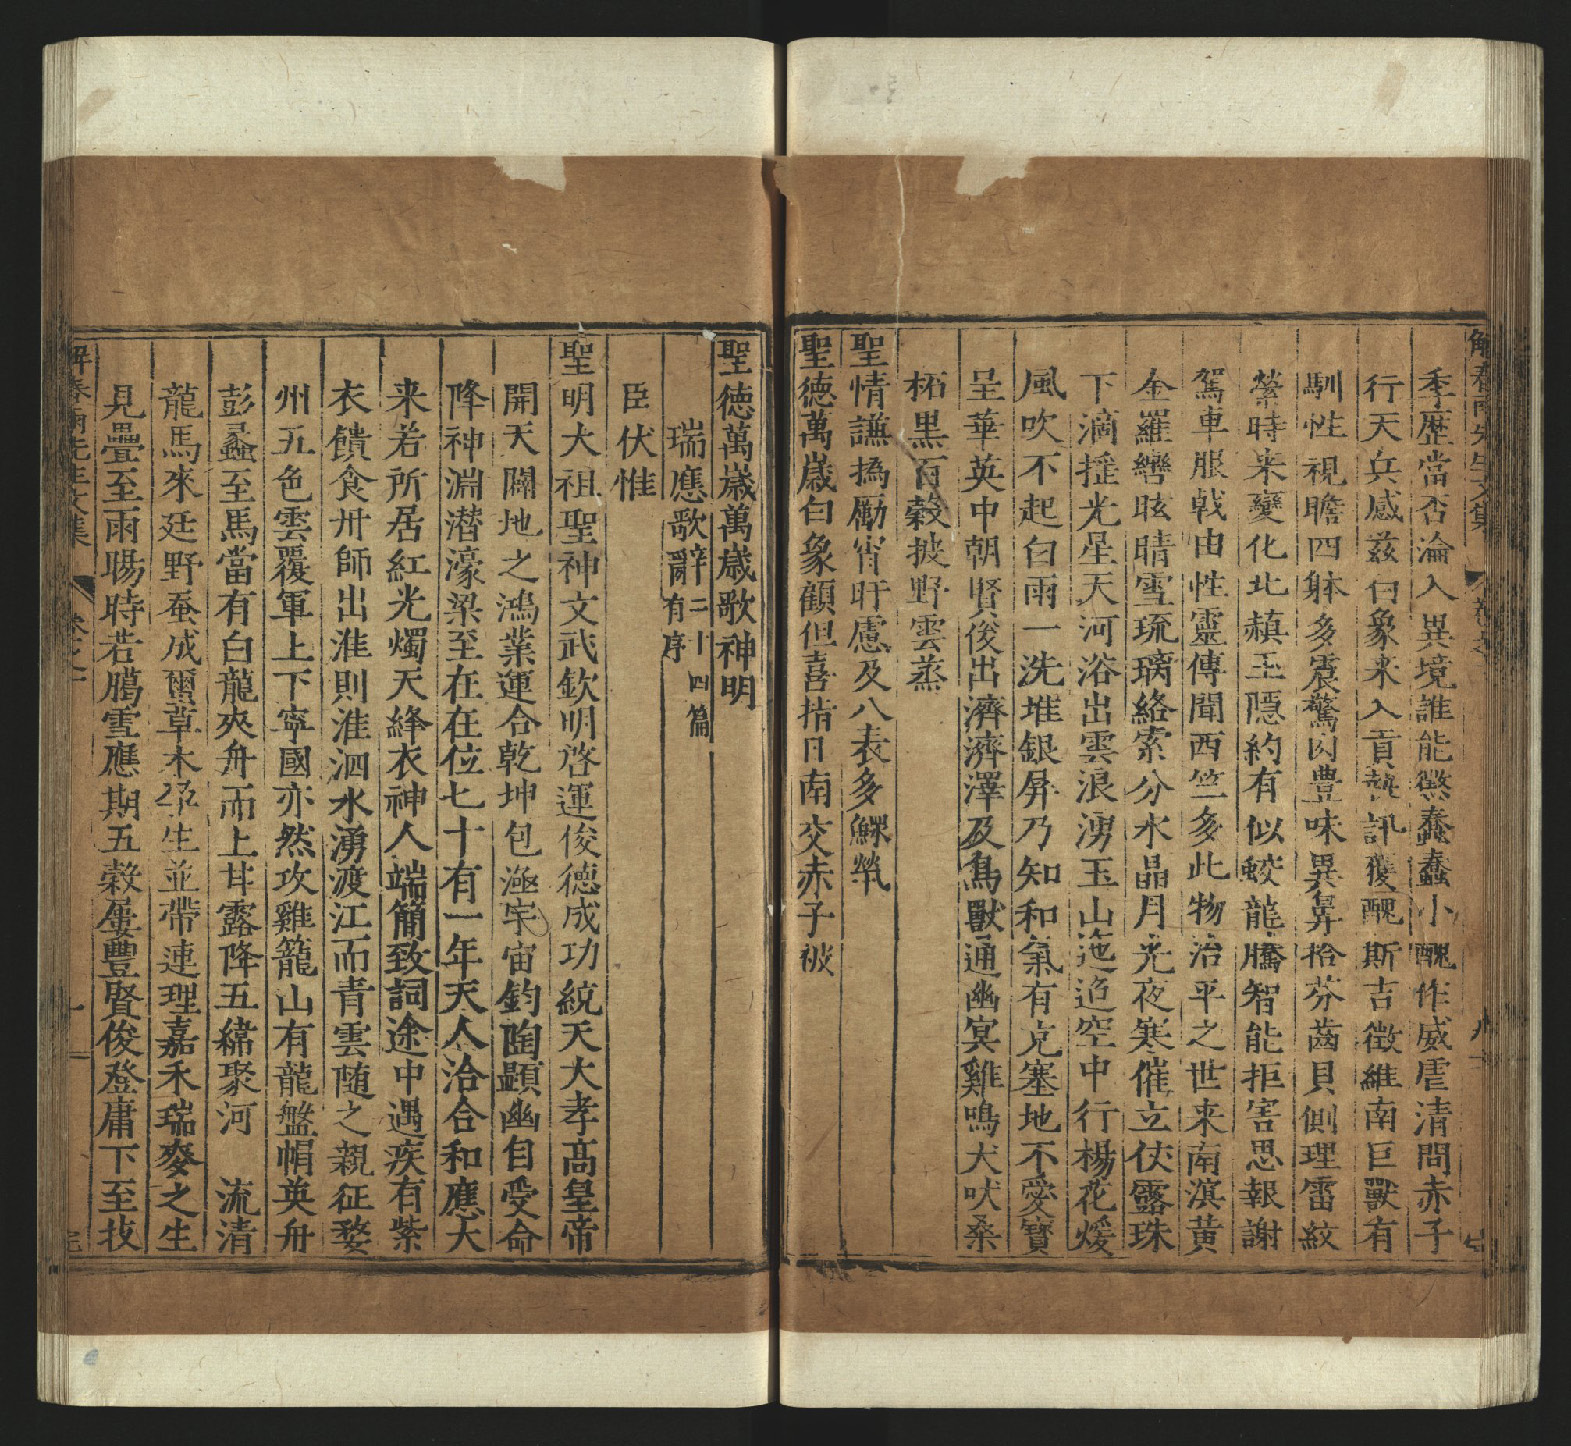 季歷當否淪入異境誰能㷼蠢蠢小醜作威虐清問赤子
行天兵感兹白象来入貢執訊獲醜斯古徵維南巨獸有
馴性視瞻四躰多震驚肉豊味異鼻拾芬齒貝側理雷紋
縈時来變化北㒹玉隠約有似蛟龍騰智能拒害思報謝
駕車服戟由性靈傳聞西竺多此物治平之世来南滇黄
金羅轡昡晴雪琉璃絡索分水晶月光夜寒催立伏露珠
下滴揺光星天河浴出雲浪湧玉山迤迤空中行楊花煖
風吹不起白雨一洗堆銀屏乃知和氣有克塞地不愛寳
呈華英中朝賢俊出濟濟澤及鳥獸通幽冥雞鳴犬吠桑
柘黒百榖披野雲蒸
聖情謙撝勵宵旰慮及八表多鰥煢
聖徳萬歳白象顧但喜指日南交赤子被
聖徳萬歳萬歳歌神明
瑞應歌辭二十四篇有序
臣伏惟
聖明大祖聖神文武欽明啓運俊徳成功統天大孝髙皇帝
開天闢地之鴻業運合乾坤包極宇宙鈞陶顯幽自受命
降神淵潜濠梁至在在位七十有一年天人洽合和應天
来若所居紅光燭天絳衣神人端簡致詞途中遇疾有紫
衣饋食卅師出淮則淮泗水湧渡江而青雲随之親征婺
州五色雲覆軍上下寧國亦然攻雞籠山有龍盤帽英舟
彭蠡至馬當有白龍夾舟而上甘露降五緯聚河 流清
龍馬來廷野蚕成蠒草木孕生並蔕連理嘉禾瑞麥之生
見疊至雨暘時若臈雪應期五榖屢豐賢俊登庸下至技